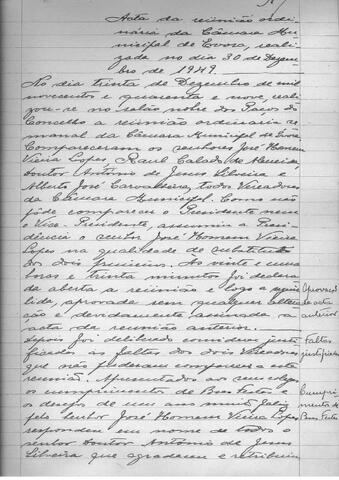 Acta da reunião ordi-
nária da Câmara Mu-
nicipal de Evora, reali-
zada no dia 30 de Dezem-
bro de 1949.
No dia trinta de Dezembro de mil
novecentos e quarenta e nove, reali-
zou-se no salão nobre dos Paços do
Concelho a reunião ordinaria se-
manal da Câmara Municipal de Evora
Compareceram os senhores José Homem
Vieira Lopes, Raul Calado de Almeida,
doutor António de Jesus Silveira e
Alberto José Carvalheira, todos Vereadores
da Câmara Municipal. Como não
pôde comparecer o Presidente nem
o Vice-Presidente, assumiu a Presi-
dência o senhor José Homem Vieira
Lopes na qualidade de substituto
dos dois primeiros. Às vinte e uma
horas e trinta minutos foi declara-
da aberta a reunião e logo a seguir
lida, aprovada sem qualquer alte-
ração e devidamente assinada a
acta da reunião anterior.
Aprovação
da acta
anterior
Depois foi deliberado considerar justi-
ficadas as faltas dos dois Vereadores
que não puderam comparecer a esta
reunião.
Faltas
justificadas
Apresentados
os cumprimentos de Boas Festas e
os desejos de um ano muito feliz
pelo senhor José Homem Vieira Lopes
respondeu em nome de todos o
senhor doutor António de Jesus
Silveira que agradeceu e retribuiu
Cumpri-
mentos de
Boas Festas